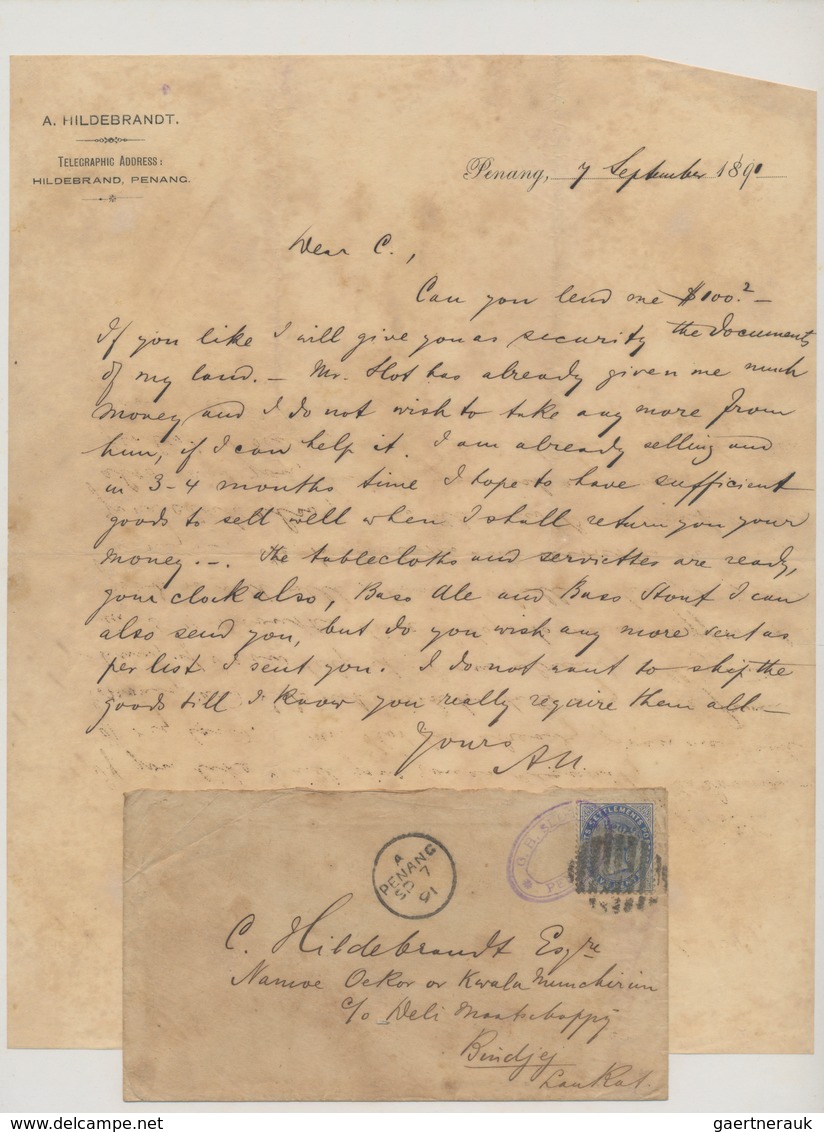 A. HILDEBRANDT.
TELEGRAPHIC ADDRESS:
HILDEBRAND, PENANG.
Penang, 7 September 1891
Dear C.,
Can you lend me $100.? –
If you like I will give you as security the documents
of my land. – Mr. Slot has already given me much
money and I do not wish to take any more from
him, if I can help it. I am already selling and
in 3-4 months time I hope to have sufficient
goods to sell well when I shall return you your
money. –. The tablecloths and serviettes are ready,
your clock also, Bass Ale and Bass Stout I can
also send you, but do you wish any more sent as
per list I sent you. I do not want to ship the
goods till I know you really require them all –
Yours
A.H.
G. H.
PE
SETTLEMENTS
A
PENANG
SP 7
91
C. Hildebrandt Esqre
Namoe Oekor or Kwala Munchirim
c/o Deli Maatschappij
Bindjej
Lankat.
gaertnerauk
delcampe.net